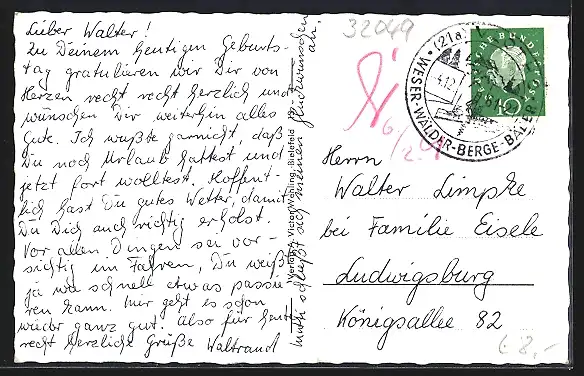 Lieber Walter!
Zu Deinem heutigen Geburts-
tag gratulieren wir Dir von
Herzen recht recht herzlich und
wünschen Dir weiterhin alles
Gute. Ich wußte garnicht, daß
Du noch Urlaub hattest und
jetzt fort wolltest. Hoffent-
lich hast Du gutes Wetter, damit
Du Dich auch richtig erholst.
Vor allen Dingen sei vor-
sichtig im Fahren, Du weißt
ja wie schnell etwas passie
ren kann. Mir geht es schon
wieder ganz gut. Also für heute
recht herzliche Grüße Waltraud
Mutti schließt sich meinen Glückwünschen
an.
Verlag: Victor Wehling, Bielefeld
32049
(21a)
WESER-WÄLDER-BERGE-BÄDER
DEUTSCHE BUNDESPOST
10
Herrn
Walter Limpke
bei Familie Eisele
Ludwigsburg
Königsallee 82
8,-